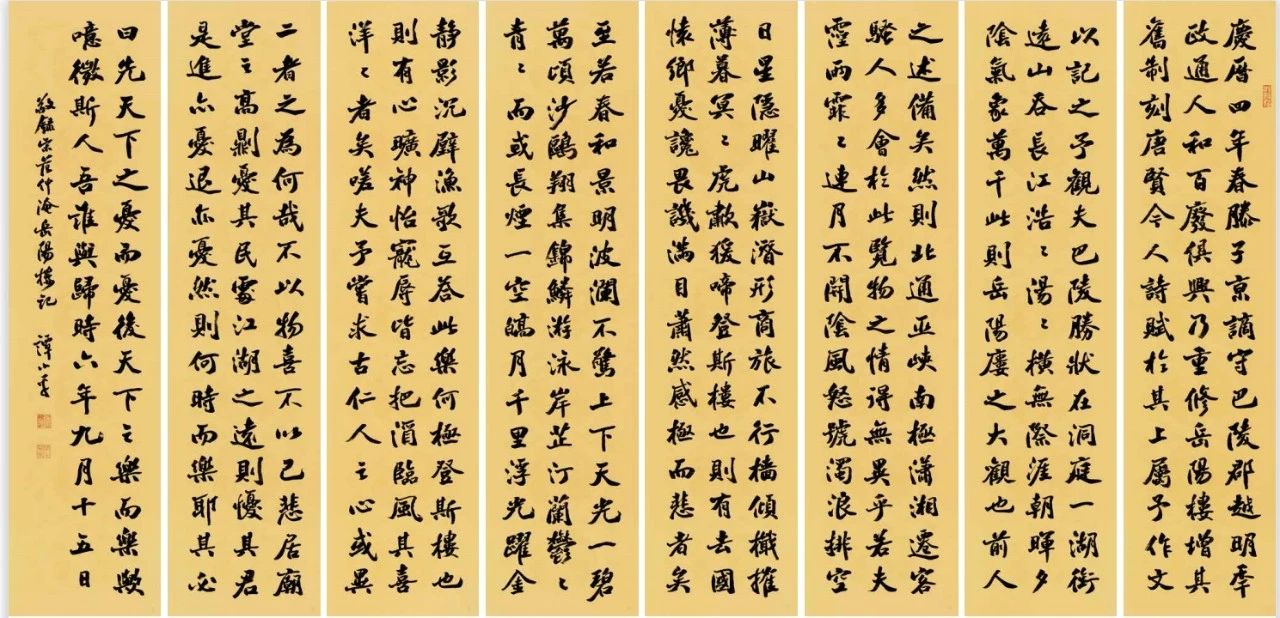 慶曆四年春滕子京謫守巴陵郡越明年
政通人和百廢俱興乃重修岳陽樓增其
舊制刻唐賢今人詩賦於其上屬予作文
以記之予觀夫巴陵勝狀在洞庭一湖銜
遠山吞長江浩〻湯〻橫無際涯朝暉夕
陰氣象萬千此則岳陽樓之大觀也前人
之述備矣然則北通巫峽南極瀟湘遷客
騷人多會於此覽物之情得無異乎若夫
霪雨霏〻連月不開陰風怒號濁浪排空
日星隱曜山嶽潛形商旅不行檣傾檝摧
薄暮冥〻虎嘯猿啼登斯樓也則有去國
懷鄉憂讒畏譏滿目蕭然感極而悲者矣
至若春和景明波瀾不驚上下天光一碧
萬頃沙鷗翔集錦鱗游泳岸芷汀蘭鬱〻
青〻而或長煙一空皜月千里浮光躍金
靜影沉璧漁歌互答此樂何極登斯樓也
則有心曠神怡寵辱皆忘把酒臨風其喜
洋〻者矣嗟夫予嘗求古仁人之心或異
二者之為何哉不以物喜不以己悲居廟
堂之高則憂其民處江湖之遠則懮其君
是進亦憂退亦憂然則何時而樂耶其必
曰先天下之憂而憂後天下之樂而樂歟
噫微斯人吾誰與歸時六年九月十五日
敬錄宋范仲淹岳陽樓記 譚小